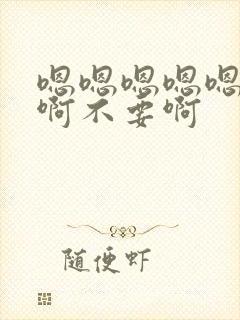 嗯嗯嗯嗯嗯
啊不要啊
随便虾